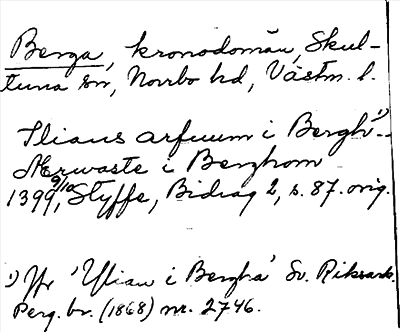 Berga, kronodomän, Skul-
tuna sn, Norrbo hd, Västm. l.
Ilians arfuum i Bergh¹⁾..
Nerwaste i Berghom
1399 9/10, Styffe, Bidrag 2, s. 87. orig.
¹⁾ Yr 'Ylian i Bergha' Sv. Riksark.
Perg. br. (1868) nr. 2746.